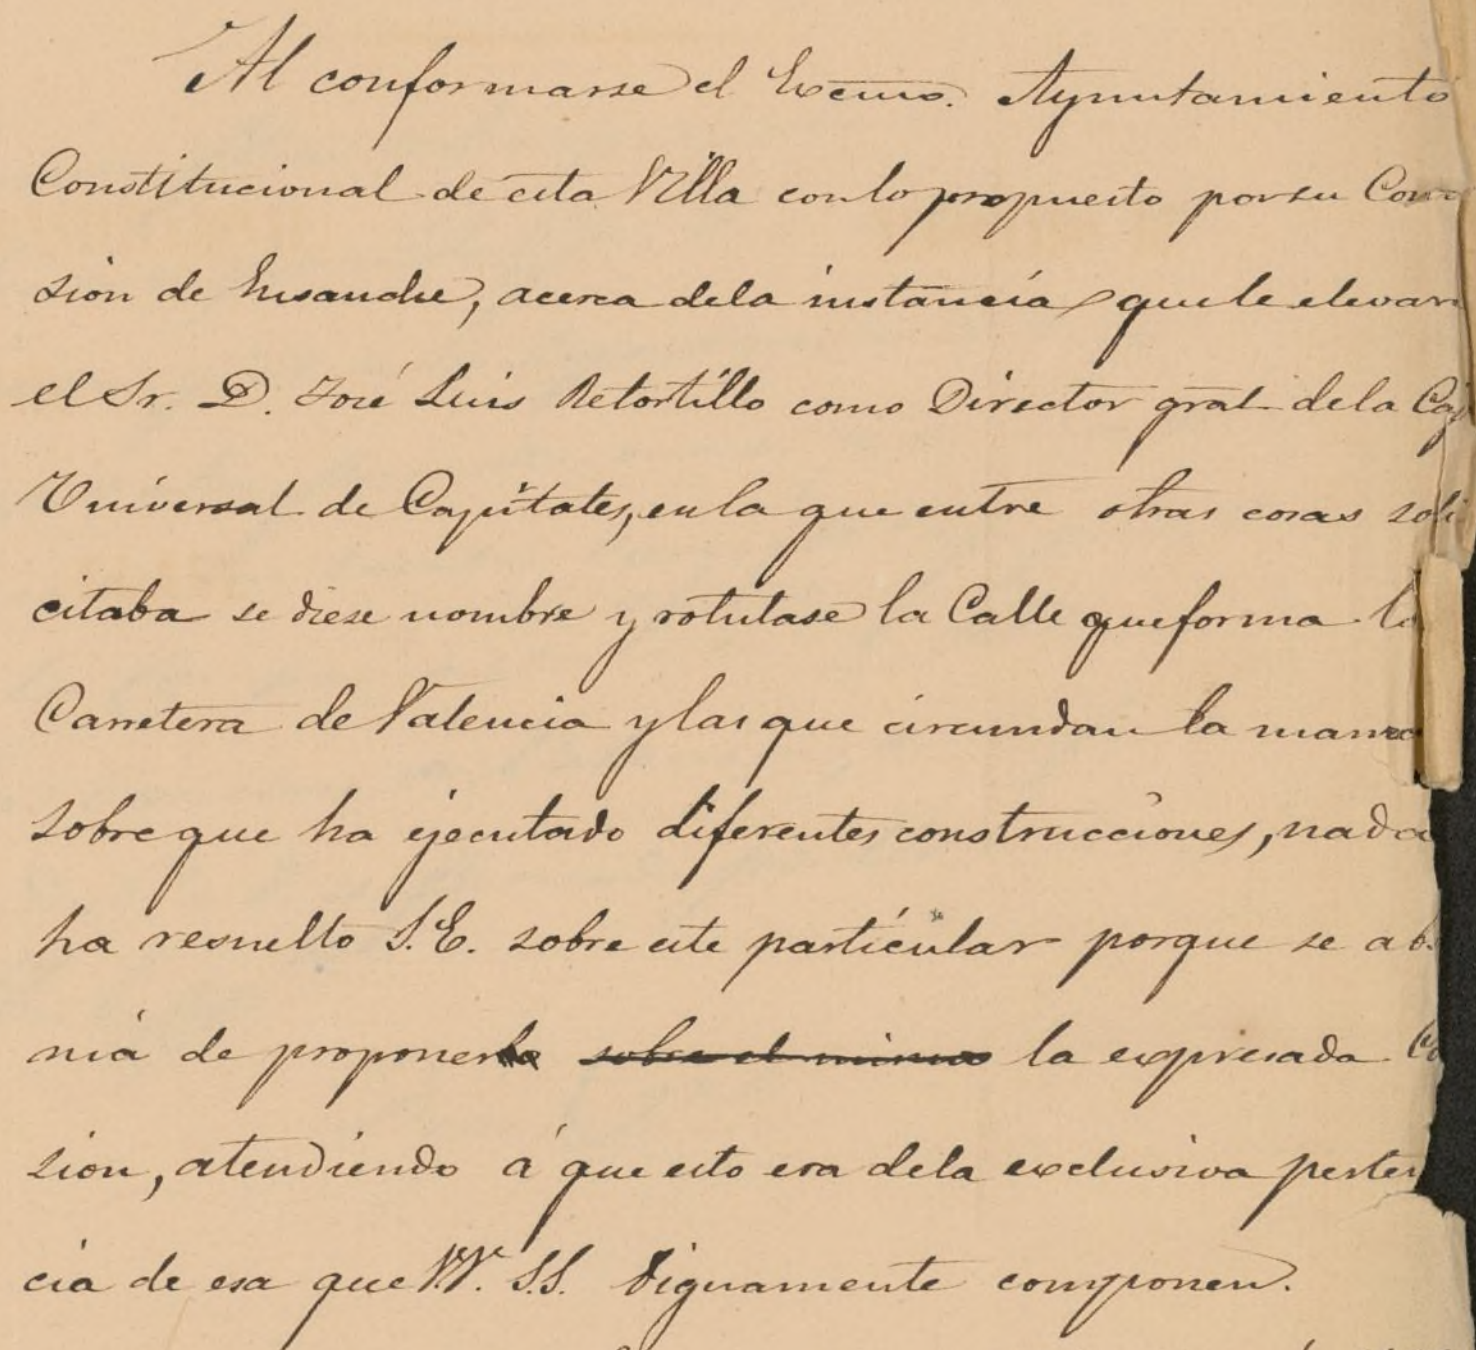 Al conformarse el Excmo. Ayuntamiento
Constitucional de esta Villa con lo propuesto por su Com
sion de Ensanche, acerca de la instancia que le elevara
el Sr. D. José Luis Retortillo como Director gral de la Caj
Universal de Capitales, en la que entre otras cosas soli
citaba se diese nombre y rotulase la Calle que forma la
Carretera de Valencia y las que circundan la manza
sobre que ha ejecutado diferentes construcciones, nada
ha resuelto S.E. sobre este particular porque se ab
niá de proponerlo sobre el mismo la expresada Co
sion, atendiendo á que esto era de la exclusiva perten
cia de esa que VV. SS. dignamente componen.